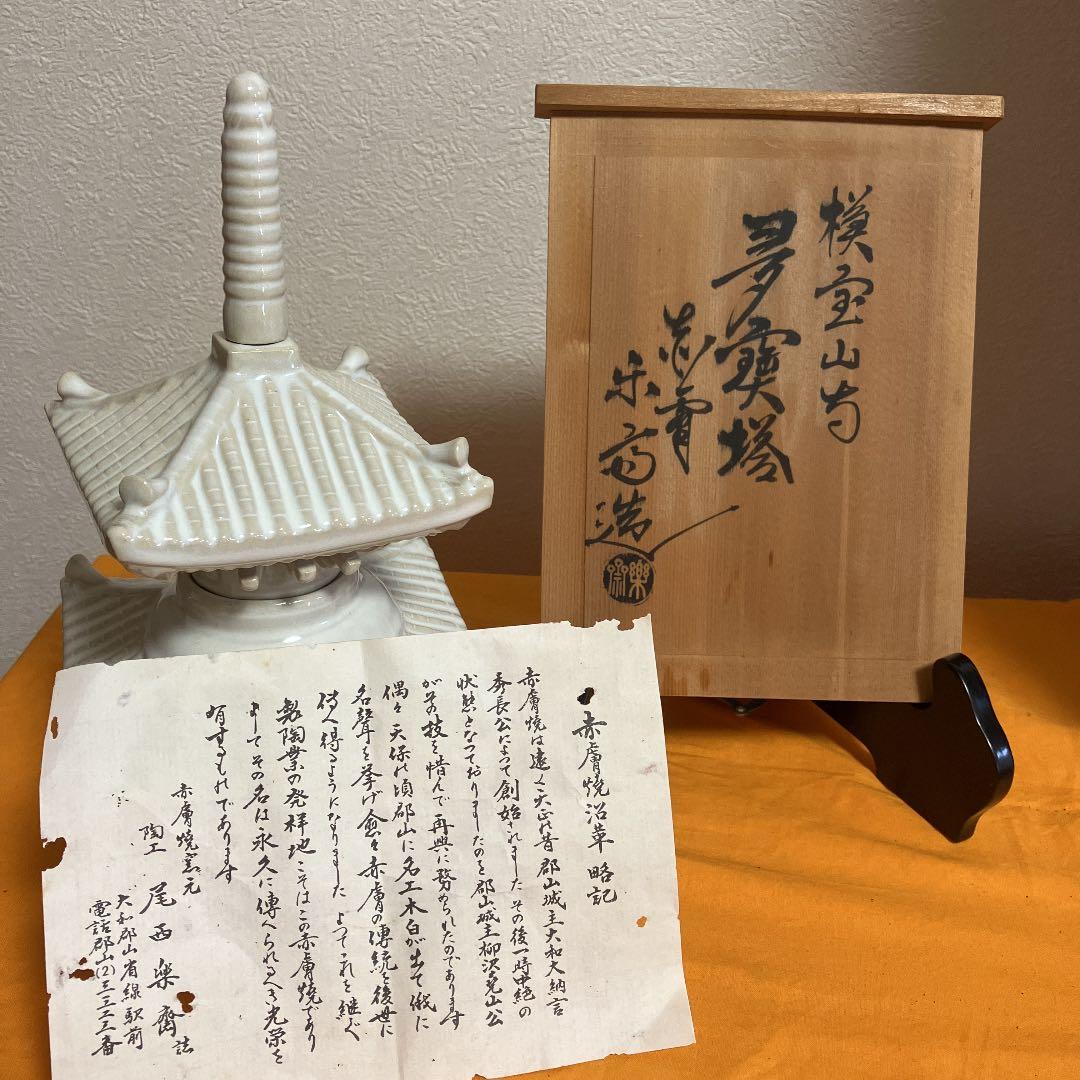 模宝山寺
多寶塔
赤膚
楽斎造
楽斎
赤膚焼沿革略記
赤膚焼は遠く天正の昔郡山城主大和大納言
秀長公によつて創始されました その後一時中絶の
状態となつておりましたのを郡山城主柳沢尭山公
がその技を惜んで再興に務められたのであります
偶々天保の頃郡山に名工木白が出て俄に
名聲を挙げ愈々赤膚の傳統を後世に
傳へ得るようになりました よつてこれを継ぐ
製陶業の発祥地こそはこの赤膚焼であり
よしてその名は永久に傳へられるべき光栄を
有するものであります
赤膚焼窯元
陶工 尾西楽斎 誌
大和郡山省線駅前
電話郡山(2)三三三三番